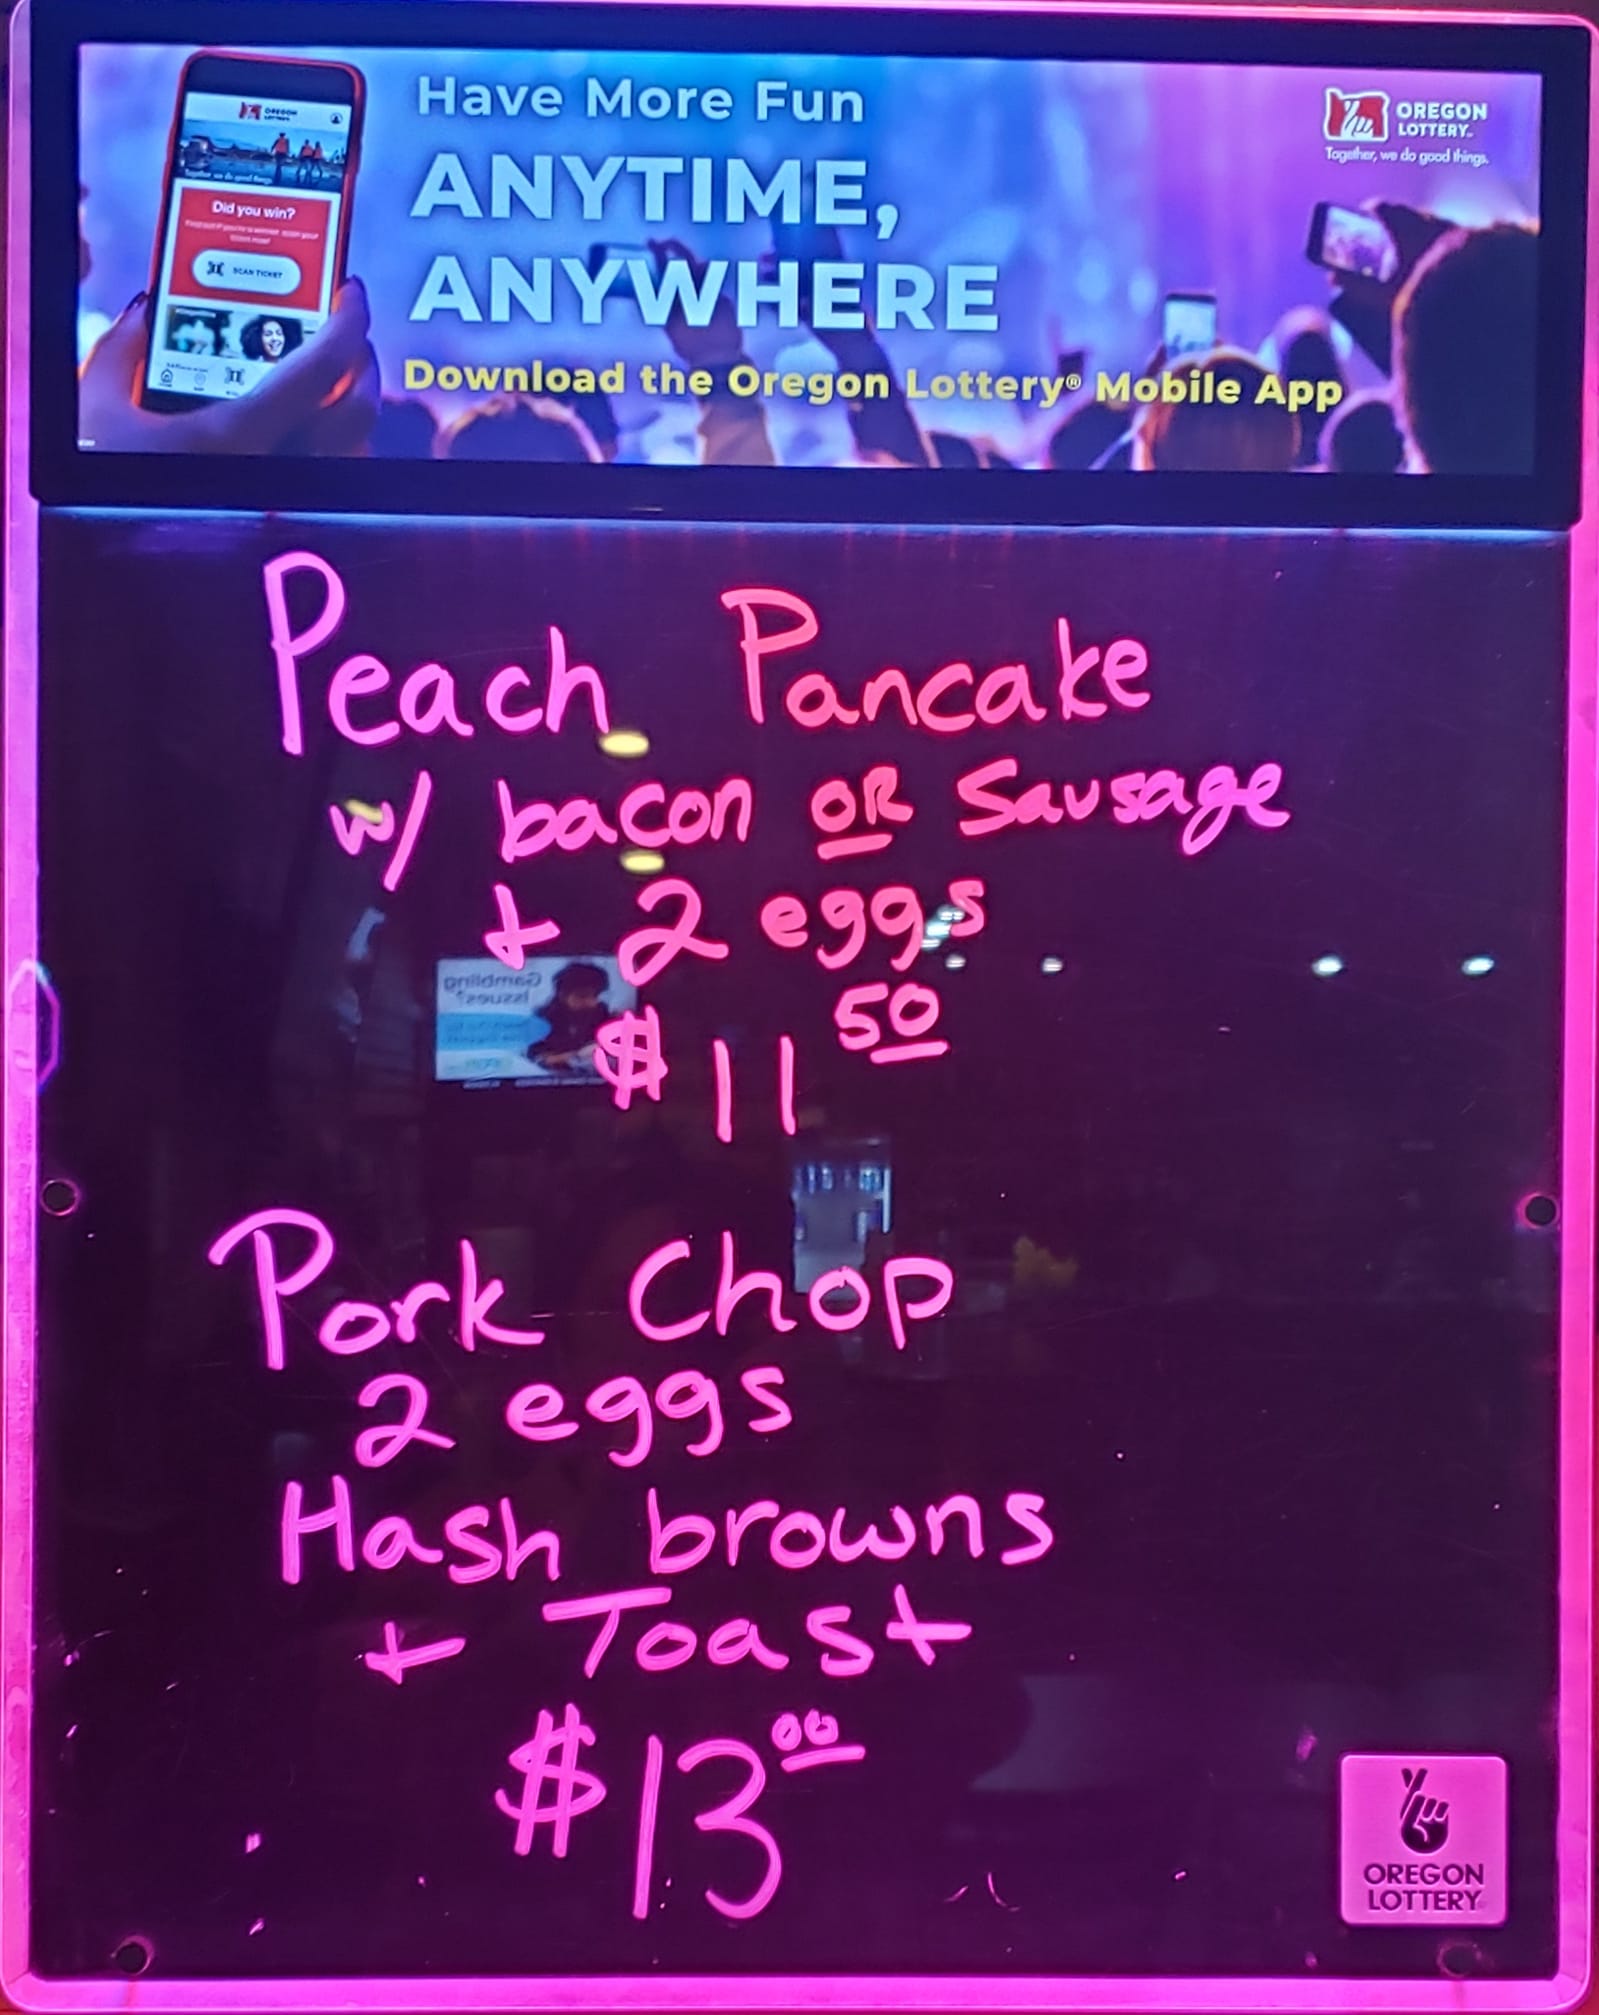 Have More Fun
ANYTIME,
ANYWHERE
Download the Oregon Lottery® Mobile App
OREGON
LOTTERY
Together, we do good things.
OREGON
LOTTERY
Together, we do good things.
Did you win?
SCAN TICKET
Peach Pancake
w/ bacon OR Sausage
+ 2 eggs
$11 50
Gambling
Issues?
Pork Chop
2 eggs
Hash browns
+ Toast
$13 00
OREGON
LOTTERY